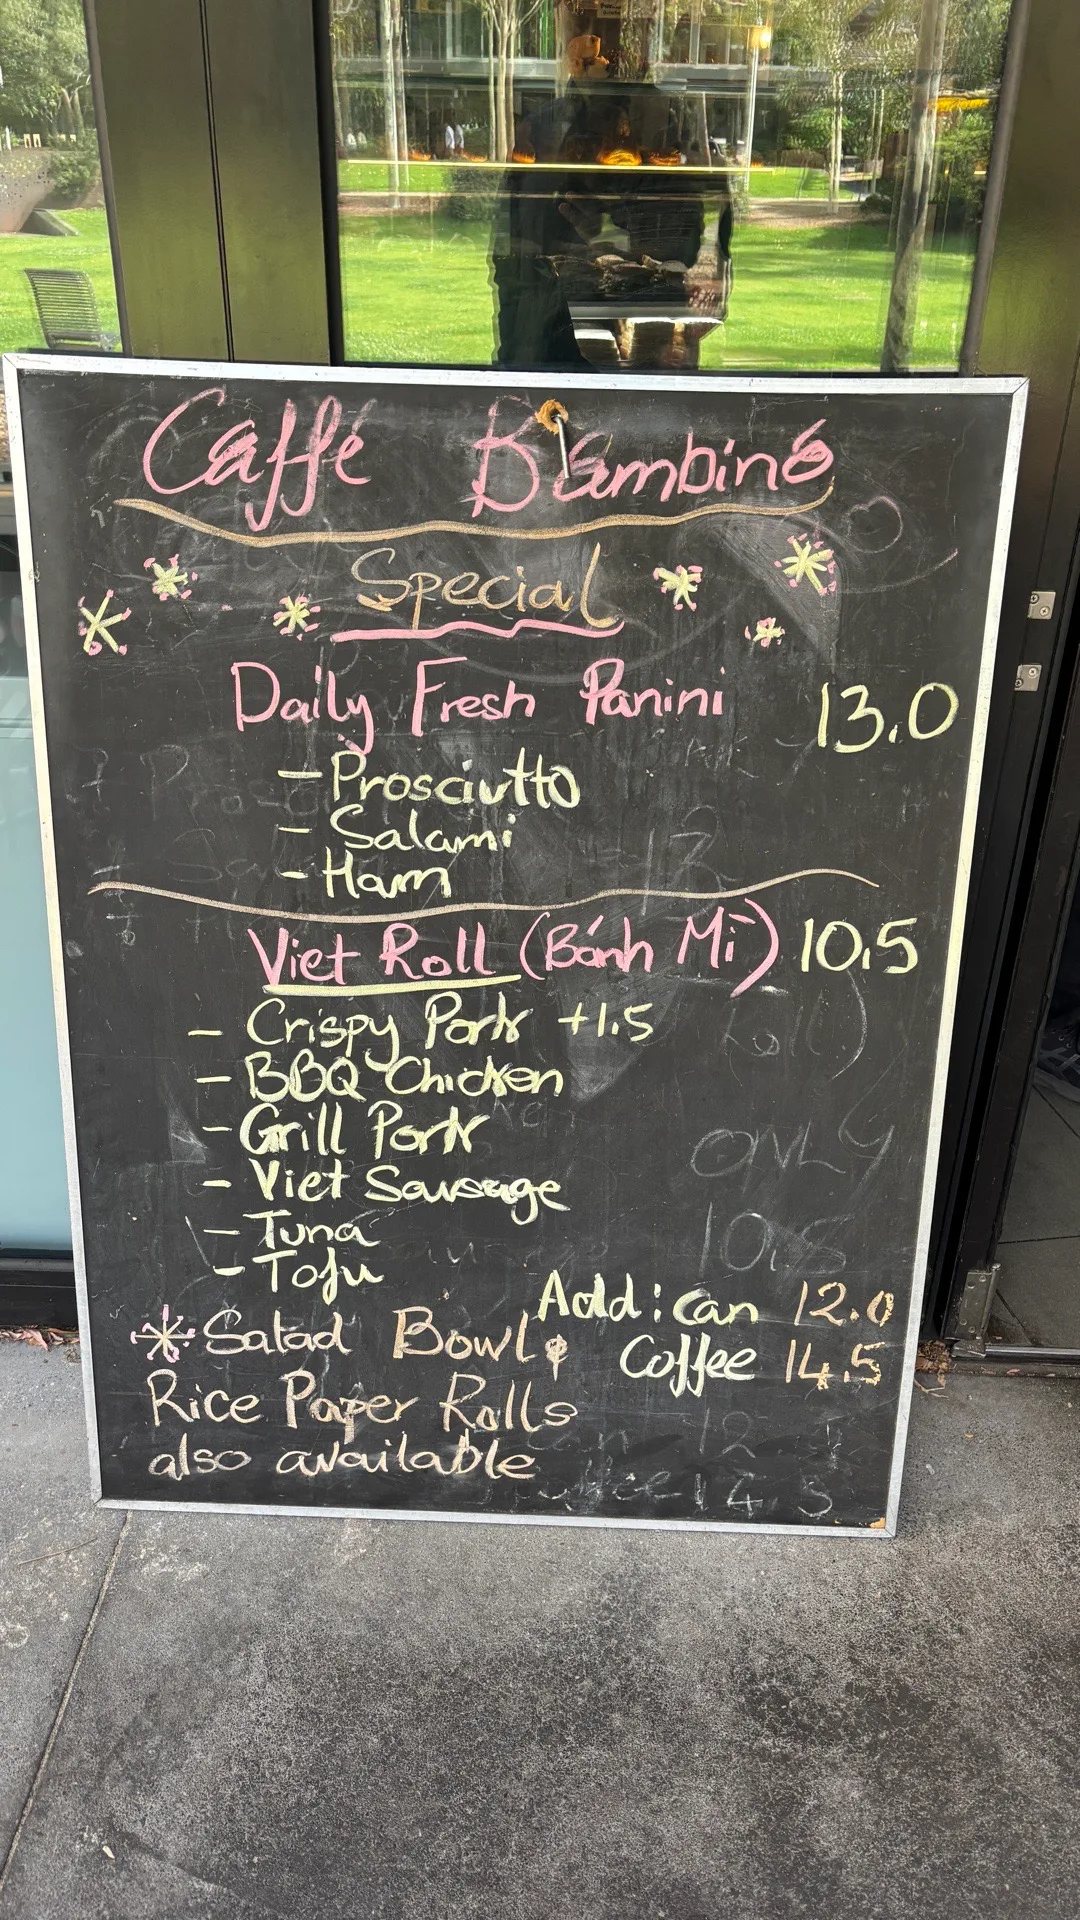 Caffé Bambino
Special
Daily Fresh Panini 13.0
- Prosciutto
- Salami
- Ham
Viet Roll (Bánh Mì) 10.5
- Crispy Pork +1.5
- BBQ Chicken
- Grill Pork
- Viet Sausage
- Tuna
- Tofu
Add: can 12.0
Coffee 14.5
* Salad Bowl &
Rice Paper Rolls
also available
ONLY
10.5
12
14.5